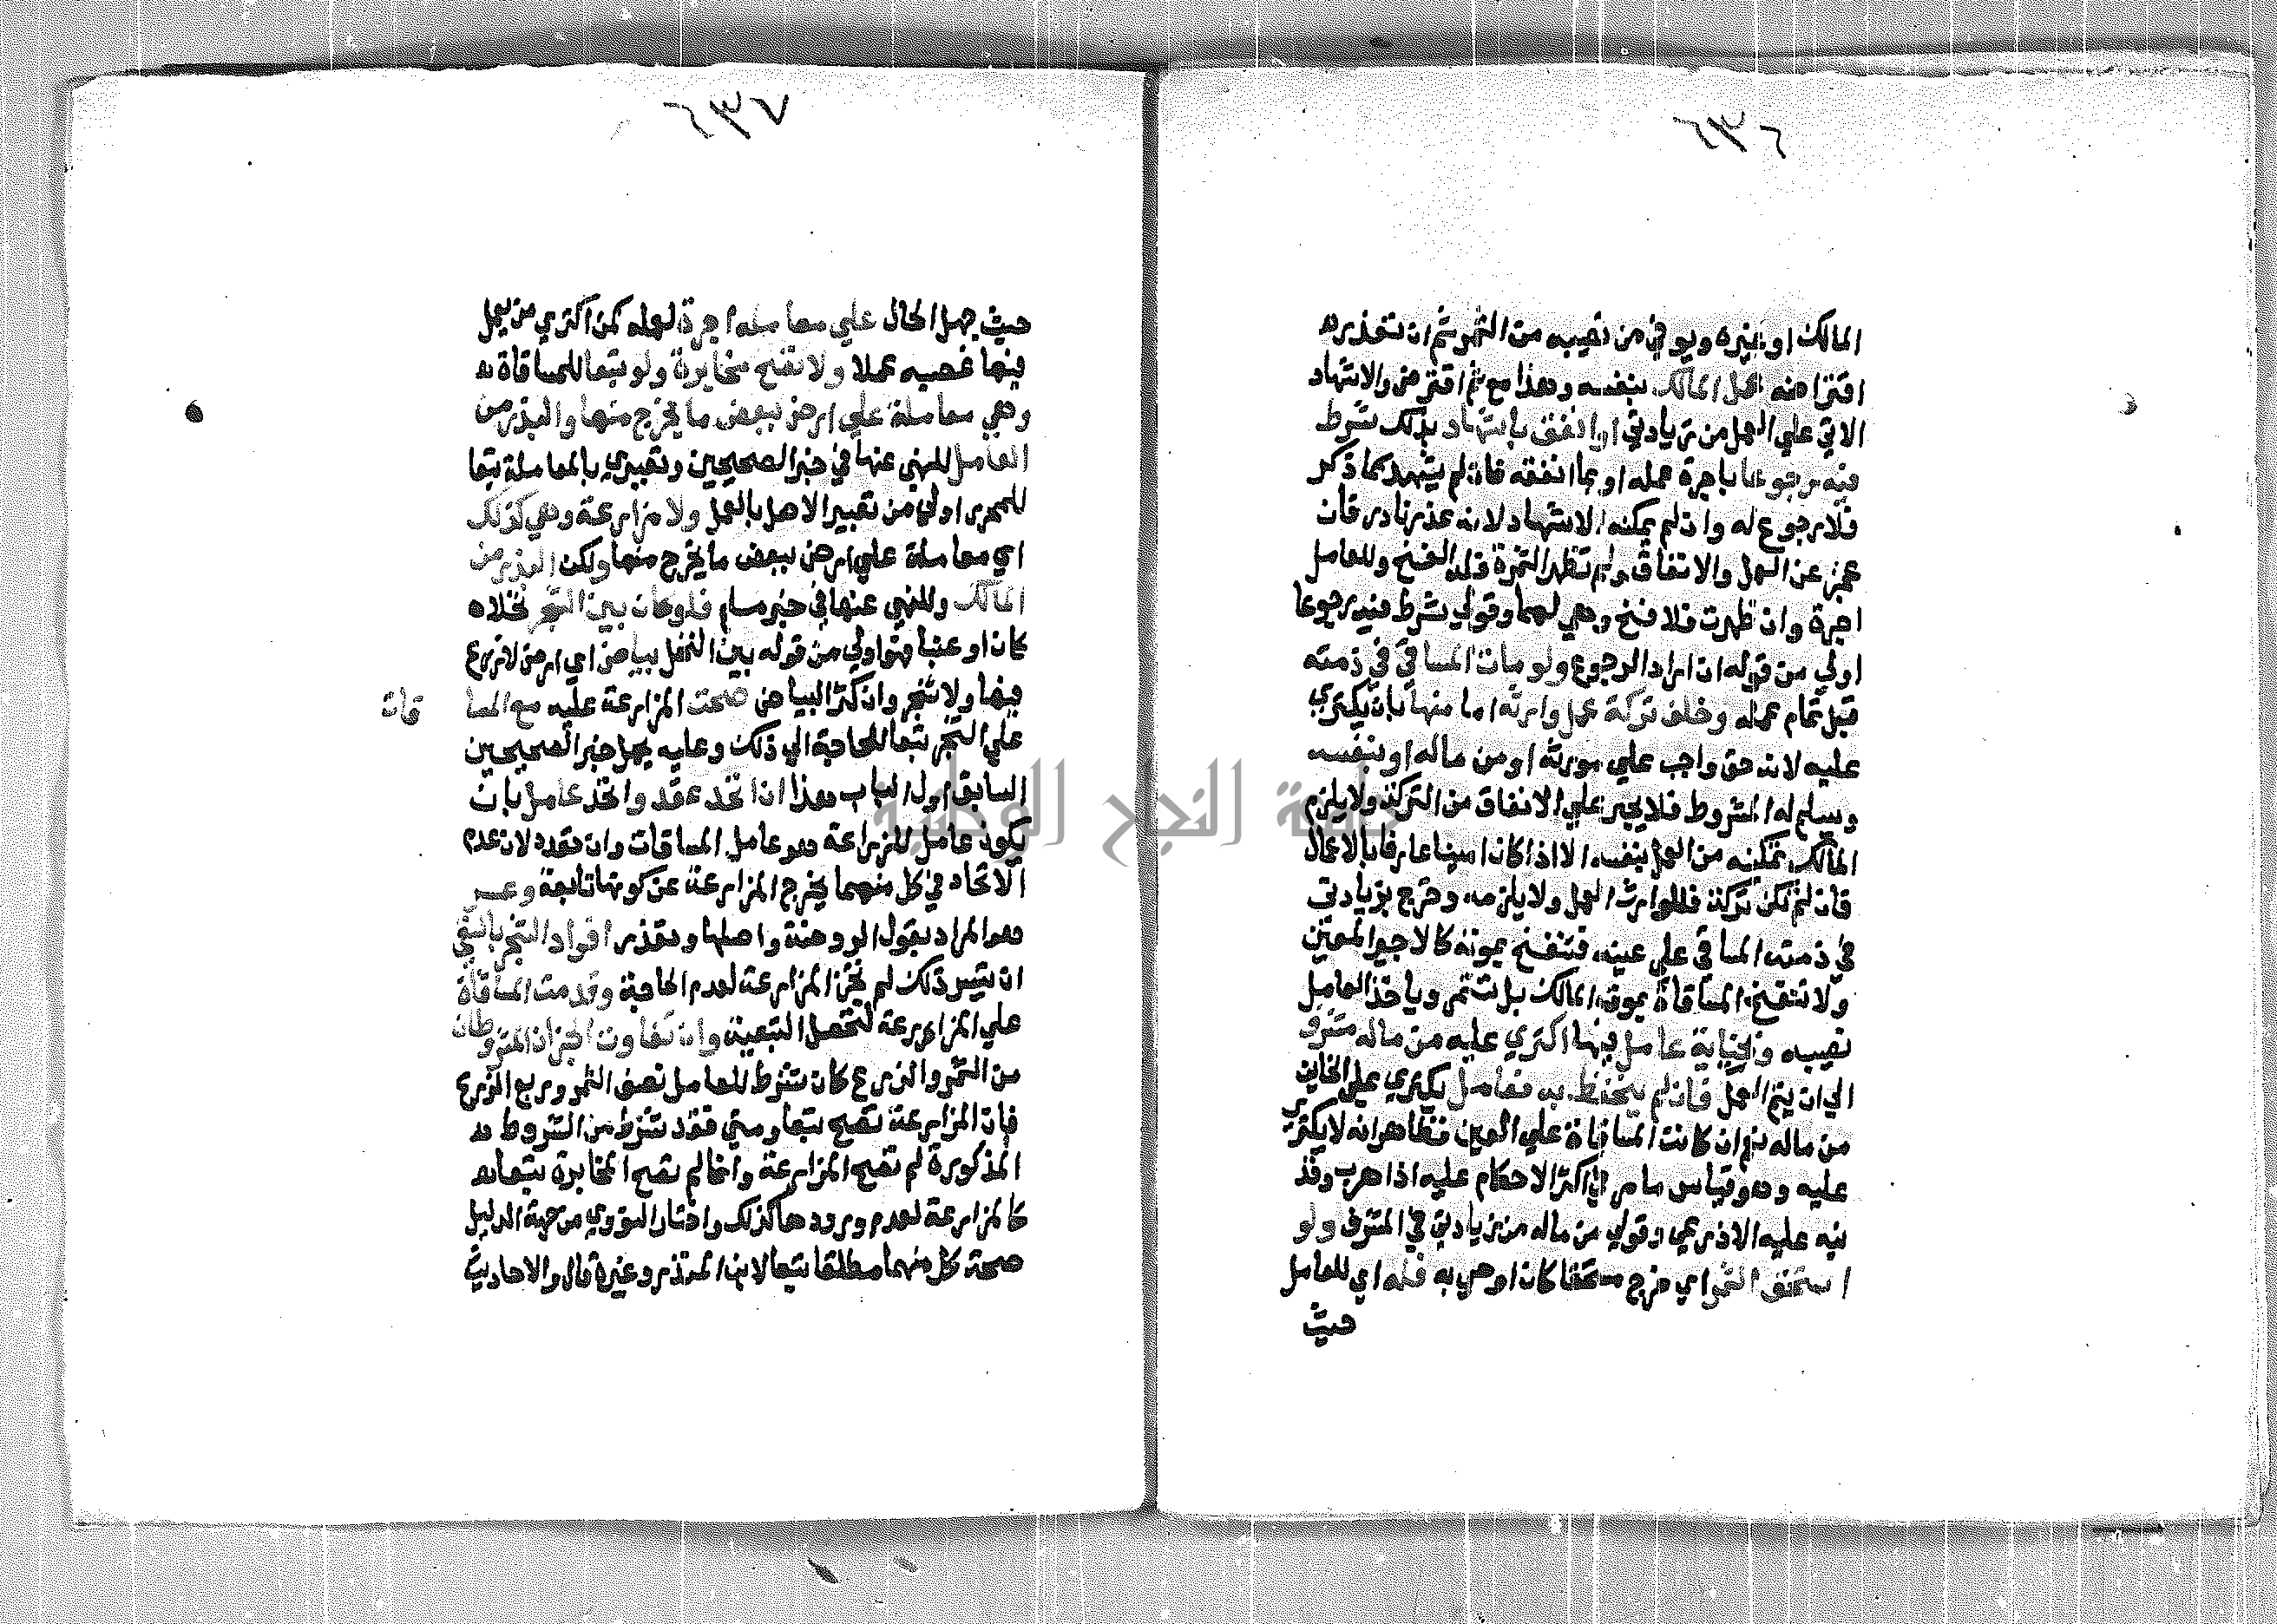 ٦٣٦
المالك او غيره ويوفي من نصيبه من الثمر ثم ان تعذر
اقتراضه عمل المالك بنفسه وهذا مع ثم اقترض والاشهاد
الاتي علي العمل من زيادتي او انفق باشهاد بذلك شرط
فيه رجوعا باجرة عمله او بما انفقه فان لم يشهد كما ذكر
فلا رجوع له وان لم يمكنه الاشهاد لانه عذر نادر فان
عجز عن العمل والانفاق ولم تظهر الثمرة فله الفسخ وللعامل
اجرة وان ظهرت فلا فسخ وهي لهما وقولي شرط فيه رجوعا
اولي من قوله ان اراد الرجوع ولو مات المساقي في ذمته
قبل تمام عمله وخلف تركة عمل وارثه اما منها بان يكتري
عليه لانه حق واجب علي مورثه او من ماله او بنفسه
ويسلم له المشروط فلا يجبر علي الانفاق من التركة ولا يلزم
المالك تمكينه من العمل بنفسه الا اذا كان امينا عارفا بالاعمال
فان لم تكن تركة فللوارث العمل ولا يلزمه وخرج بزيادتي
في ذمته المساقي علي عينه فتنفسخ بموته كالاجير المعين
ولا تنفسخ المساقاة بموت المالك بل تستمر وياخذ العامل
نصيبه وبخيانة عامل فيها اكتري عليه من ماله مشرف
الي ان يتم العمل فان لم ينحفظ به فعامل يكتري علي الخاين
من ماله نعم ان كانت المساقاة علي العين فظاهر انه لا يكتري
عليه وهو قياس ما مر في اكثر الاحكام عليه اذا هرب وقد
نبه عليه الاذرعي وقولي من ماله من زيادتي في المشرف ولو
استحق الثمر اي خرج مستحقا كان اوصي به فله اي للعامل
حيث
٦٣٧
حيث جهل الحال علي معامله اجرة لعمله كمن اكتري من يعمل
فيها غصبه عملا ولا تصح مخابرة ولو تبعا للمساقاة
وهي معاملة علي ارض ببعض ما يخرج منها والبذر من
العامل للنهي عنها في خبر الصحيحين وتعبيري بالمعاملة تبعا
للمحرر اولي من تعبير الاصل بالعمل ولا مزارعة وهي كذلك
اي معاملة علي ارض ببعض ما يخرج منها ولكن البذر من
المالك وللنهي عنها في خبر مسلم فلو كان بين الشجر نخلا
كان او عنبا فهو اولي من قوله بين النخل بياض اي ارض لا زرع
فيها ولا شجر وان كثر البياض صحت المزارعة عليه مع المسا
قات
علي الشجر تبعا للحاجة الي ذلك وعليه يحمل خبر الصحيحين
السابق اول الباب هذا ان اتحد عقد واتحد عامل بان
يكون عامل المزارعة هو عامل المساقات وان تعدد لان عدم
الاتحاد في كل منهما يخرج المزارعة عن كونها تابعة وعسر
هو المراد بقول الروضة واصلها وتعذر افراد الشجر بالسقي
ان تيسر ذلك لم تجز المزارعة لعدم الحاجة وقدمت المساقاة
علي المزارعة لتحصل التبعية وان تفاوت الجزان المشروطان
من الثمر والزرع كان شرط للعامل نصف الثمر وربع الزرع
فان المزارعة تصح تبعا ومتي فقد شرط من الشروط
المذكورة لم تصح المزارعة وانما لم تصح المخابرة تبعا
كالمزارعة لعدم ورودها كذلك واختار النووي من جهة الدليل
صحة كل منهما مطلقا تبعا لابن المنذر وغيره قال والاحاديث
جامعة النجاح الوطنية